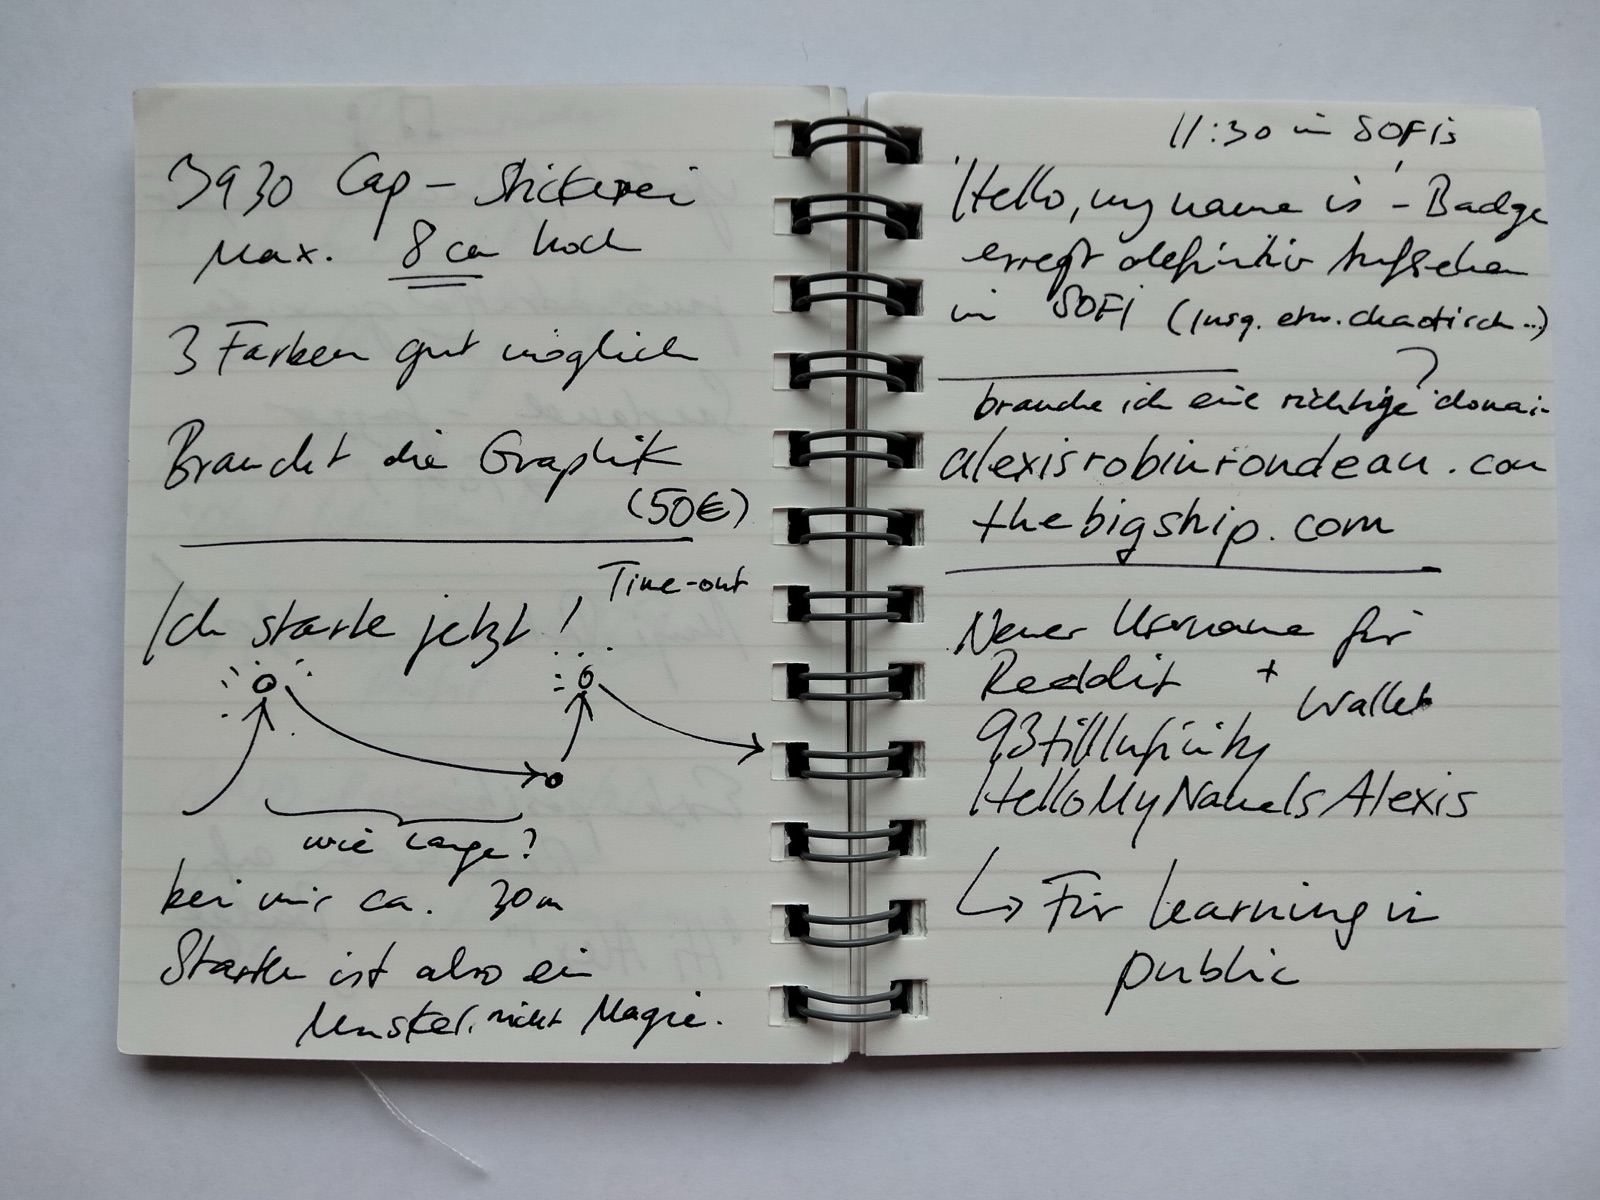 3930 Cap - Stickerei
Max. 8 cm hoch
3 Farben gut möglich
Braucht die Graphik
(50€)
Time-out
Ich starte jetzt!
wie lange?
bei mir ca. 30m
Starten ist also ein
Muskel, nicht Magie.
11:30 in SOFIs
'Hello, my name is' - Badge
erregt definitiv Aufsehen
in SOFI (insg. etw. chaotisch...)
brauche ich eine richtige domain?
alexisrobinrondeau.com
thebigship.com
Neuer Username für
Reddit + Wallet
93tillInfinity
HelloMyNameIsAlexis
↳ Für learning in
public